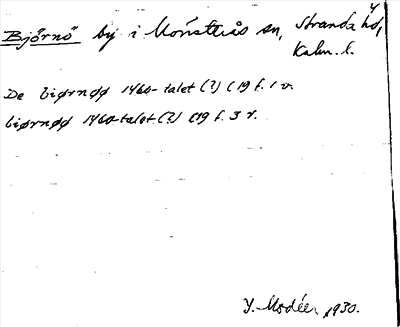 Björnö by i Mönsterås sn, Stranda hd,
Kalm. l.
De biørnøø 1460-talet (?) C 19 f. 1 v.
biørnøø 1460-talet (?) C 19 f. 3 r.
I. Modéer 1930.